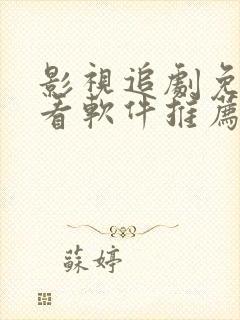 影視追劇免
看軟件推薦
蘇婷